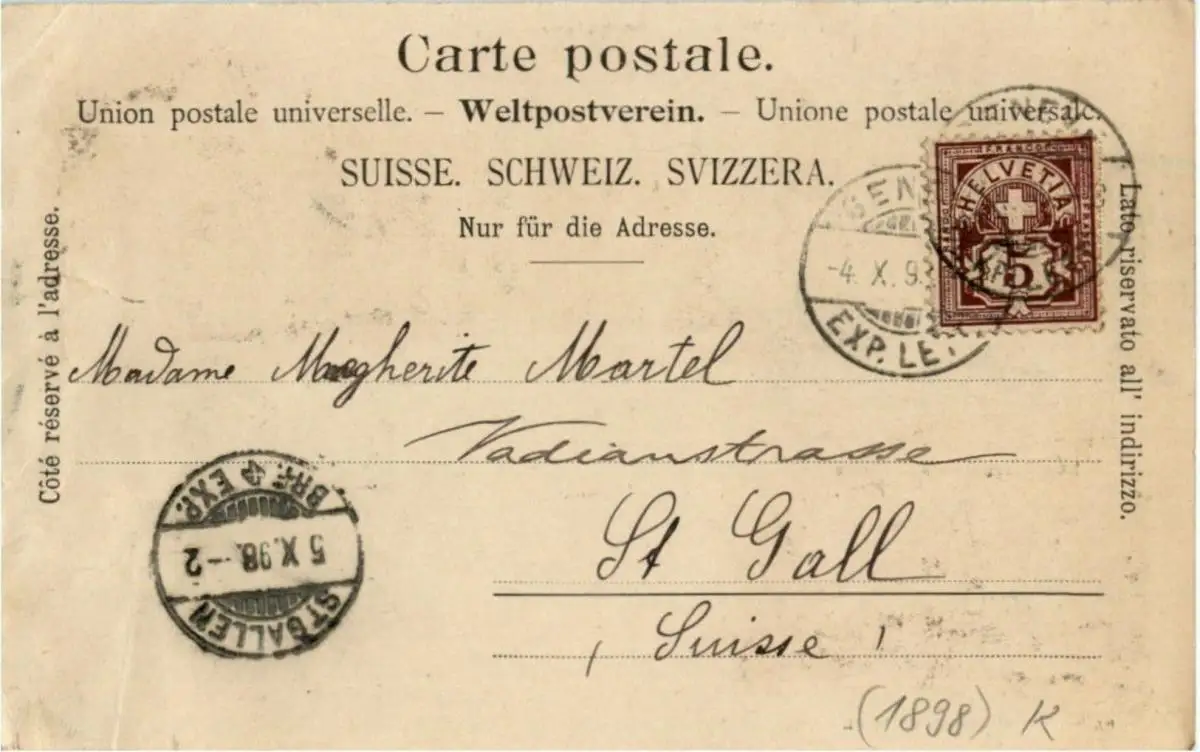 Carte postale.
Union postale universelle. – Weltpostverein. – Unione postale universale.
SUISSE. SCHWEIZ. SVIZZERA.
Nur für die Adresse.
Côté réservé à l'adresse.
Lato riservato all' indirizzo.
FRANCO
HELVETIA
5
-4. X. 9
EXP. LE
Madame Margherite Martel
Vadianstrasse
St Gall
(Suisse)
BRF. EXP.
5 X. 98. -- 2
ST. GALLEN
(1898) K